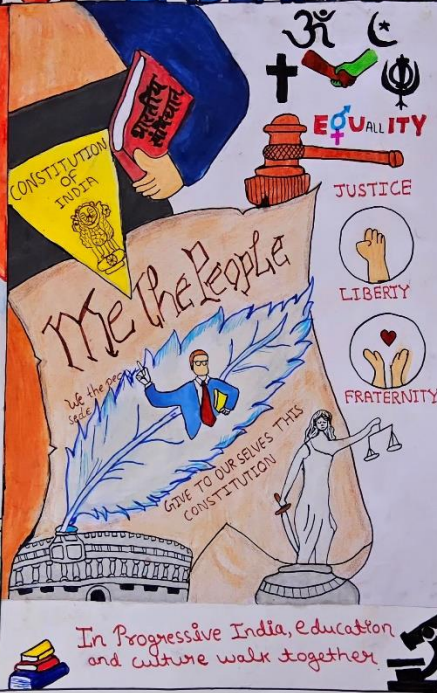 भारतीय
संविधान
CONSTITUTION
OF
INDIA
EQUALLITY
JUSTICE
LIBERTY
FRATERNITY
We the People
We the
GIVE TO OURSELVES THIS
CONSTITUTION
In Progressive India, education
and culture walk together